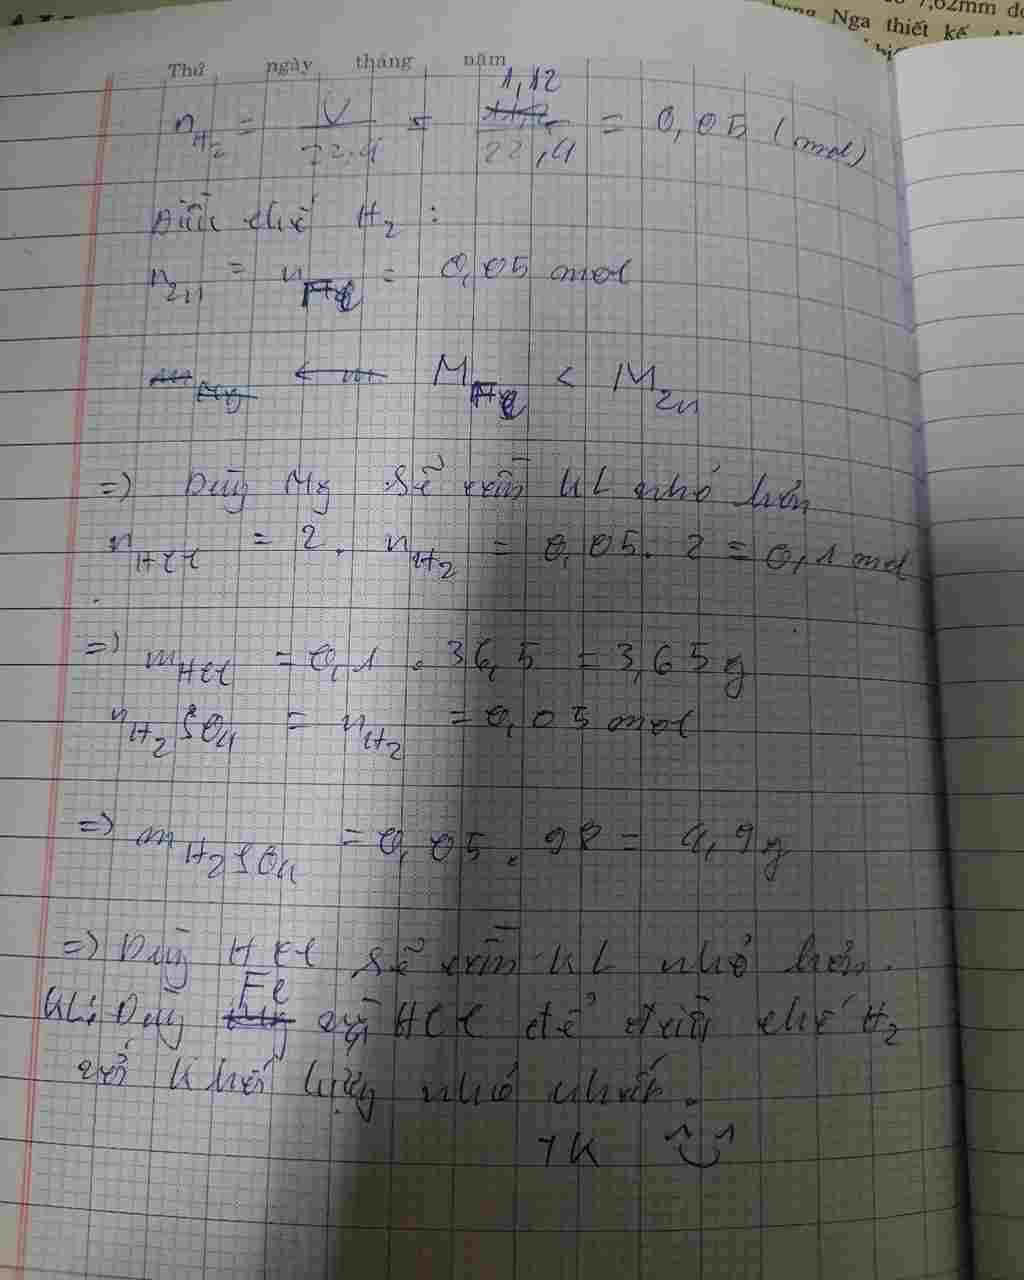 7,62mm
Nga thiết kế
Thứ ngày tháng năm
1,12
n H2 = V/22,4 = 22,4 = 0,05 (mol)
Điều chế H2 :
n Zn = n Fe = 0,05 mol
M Fe < M Zn
=> Dùng Mg sẽ cần KL nhỏ hơn
n HCl = 2 . n H2 = 0,05 . 2 = 0,1 mol
=> m HCl = 0,1 . 36,5 = 3,65 g
n H2SO4 = n H2 = 0,05 mol
=> m H2SO4 = 0,05 . 98 = 4,9 g
=> Dùng HCl sẽ cần KL nhỏ hơn.
Fe
KL: Dùng và HCl để điều chế H2
với khối lượng nhỏ nhất.
TK